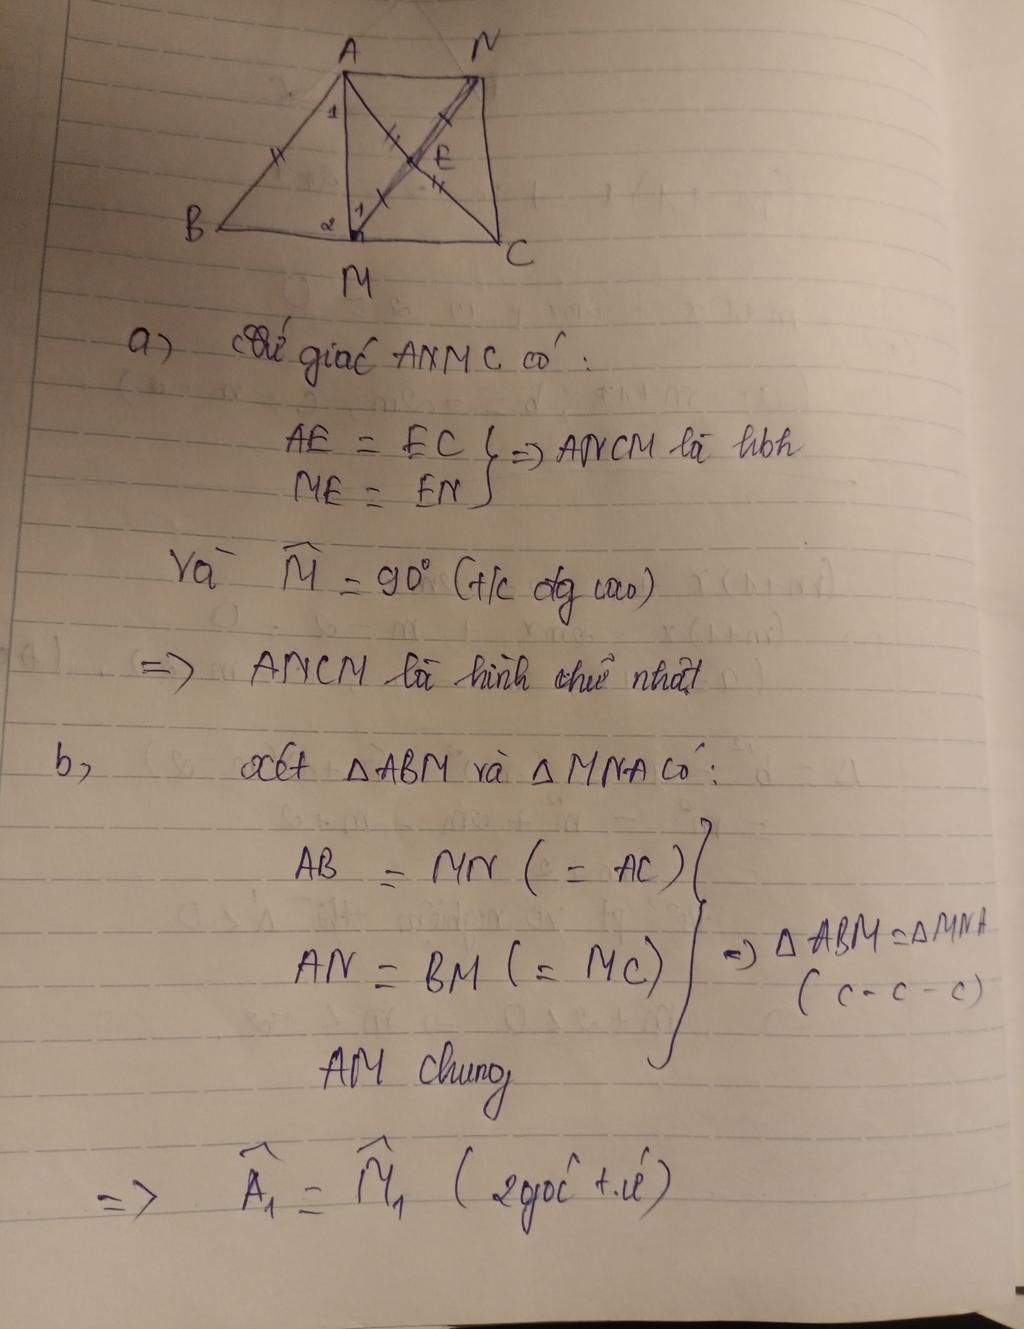 A N
1
E
B 2 1 C
M
a) tứ giác ANMC có:
AE = EC
ME = EN } => ANCM là hbh
Và M̂ = 90° (t/c đg cao)
=> ANCM là hình chữ nhật
b, xét ΔABM và ΔMNA có:
AB = MN (= AC)
AN = BM (= MC) } => ΔABM = ΔMNA
(c - c - c)
AM chung
=> Â₁ = M̂₁ (2 góc t.ư)